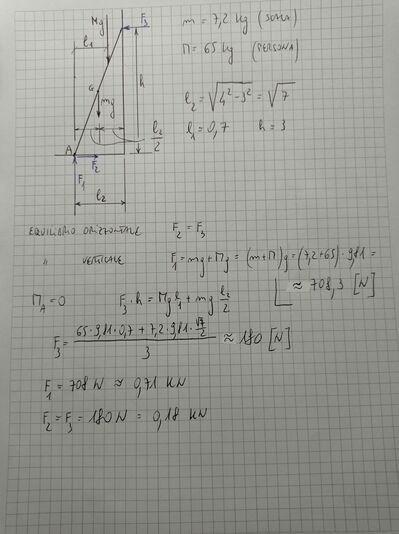 Mg
F3
l1
G
mg
h
A
F2
F1
l2/2
l2
m = 7,2 kg (SCALA)
M = 65 kg (PERSONA)
l2 = √4²-3² = √7
l1 = 0,7 h = 3
EQUILIBRIO ORIZZONTALE F2 = F3
" VERTICALE F1 = mg + Mg = (m+M)g = (7,2+65)·9,81 =
≈ 708,3 [N]
MA = 0 F3·h = Mg l1 + mg l2/2
F3 = (65·9,81·0,7 + 7,2·9,81·√7/2)/3 ≈ 180 [N]
F1 = 708 N ≈ 0,71 KN
F2 = F3 = 180 N = 0,18 KN